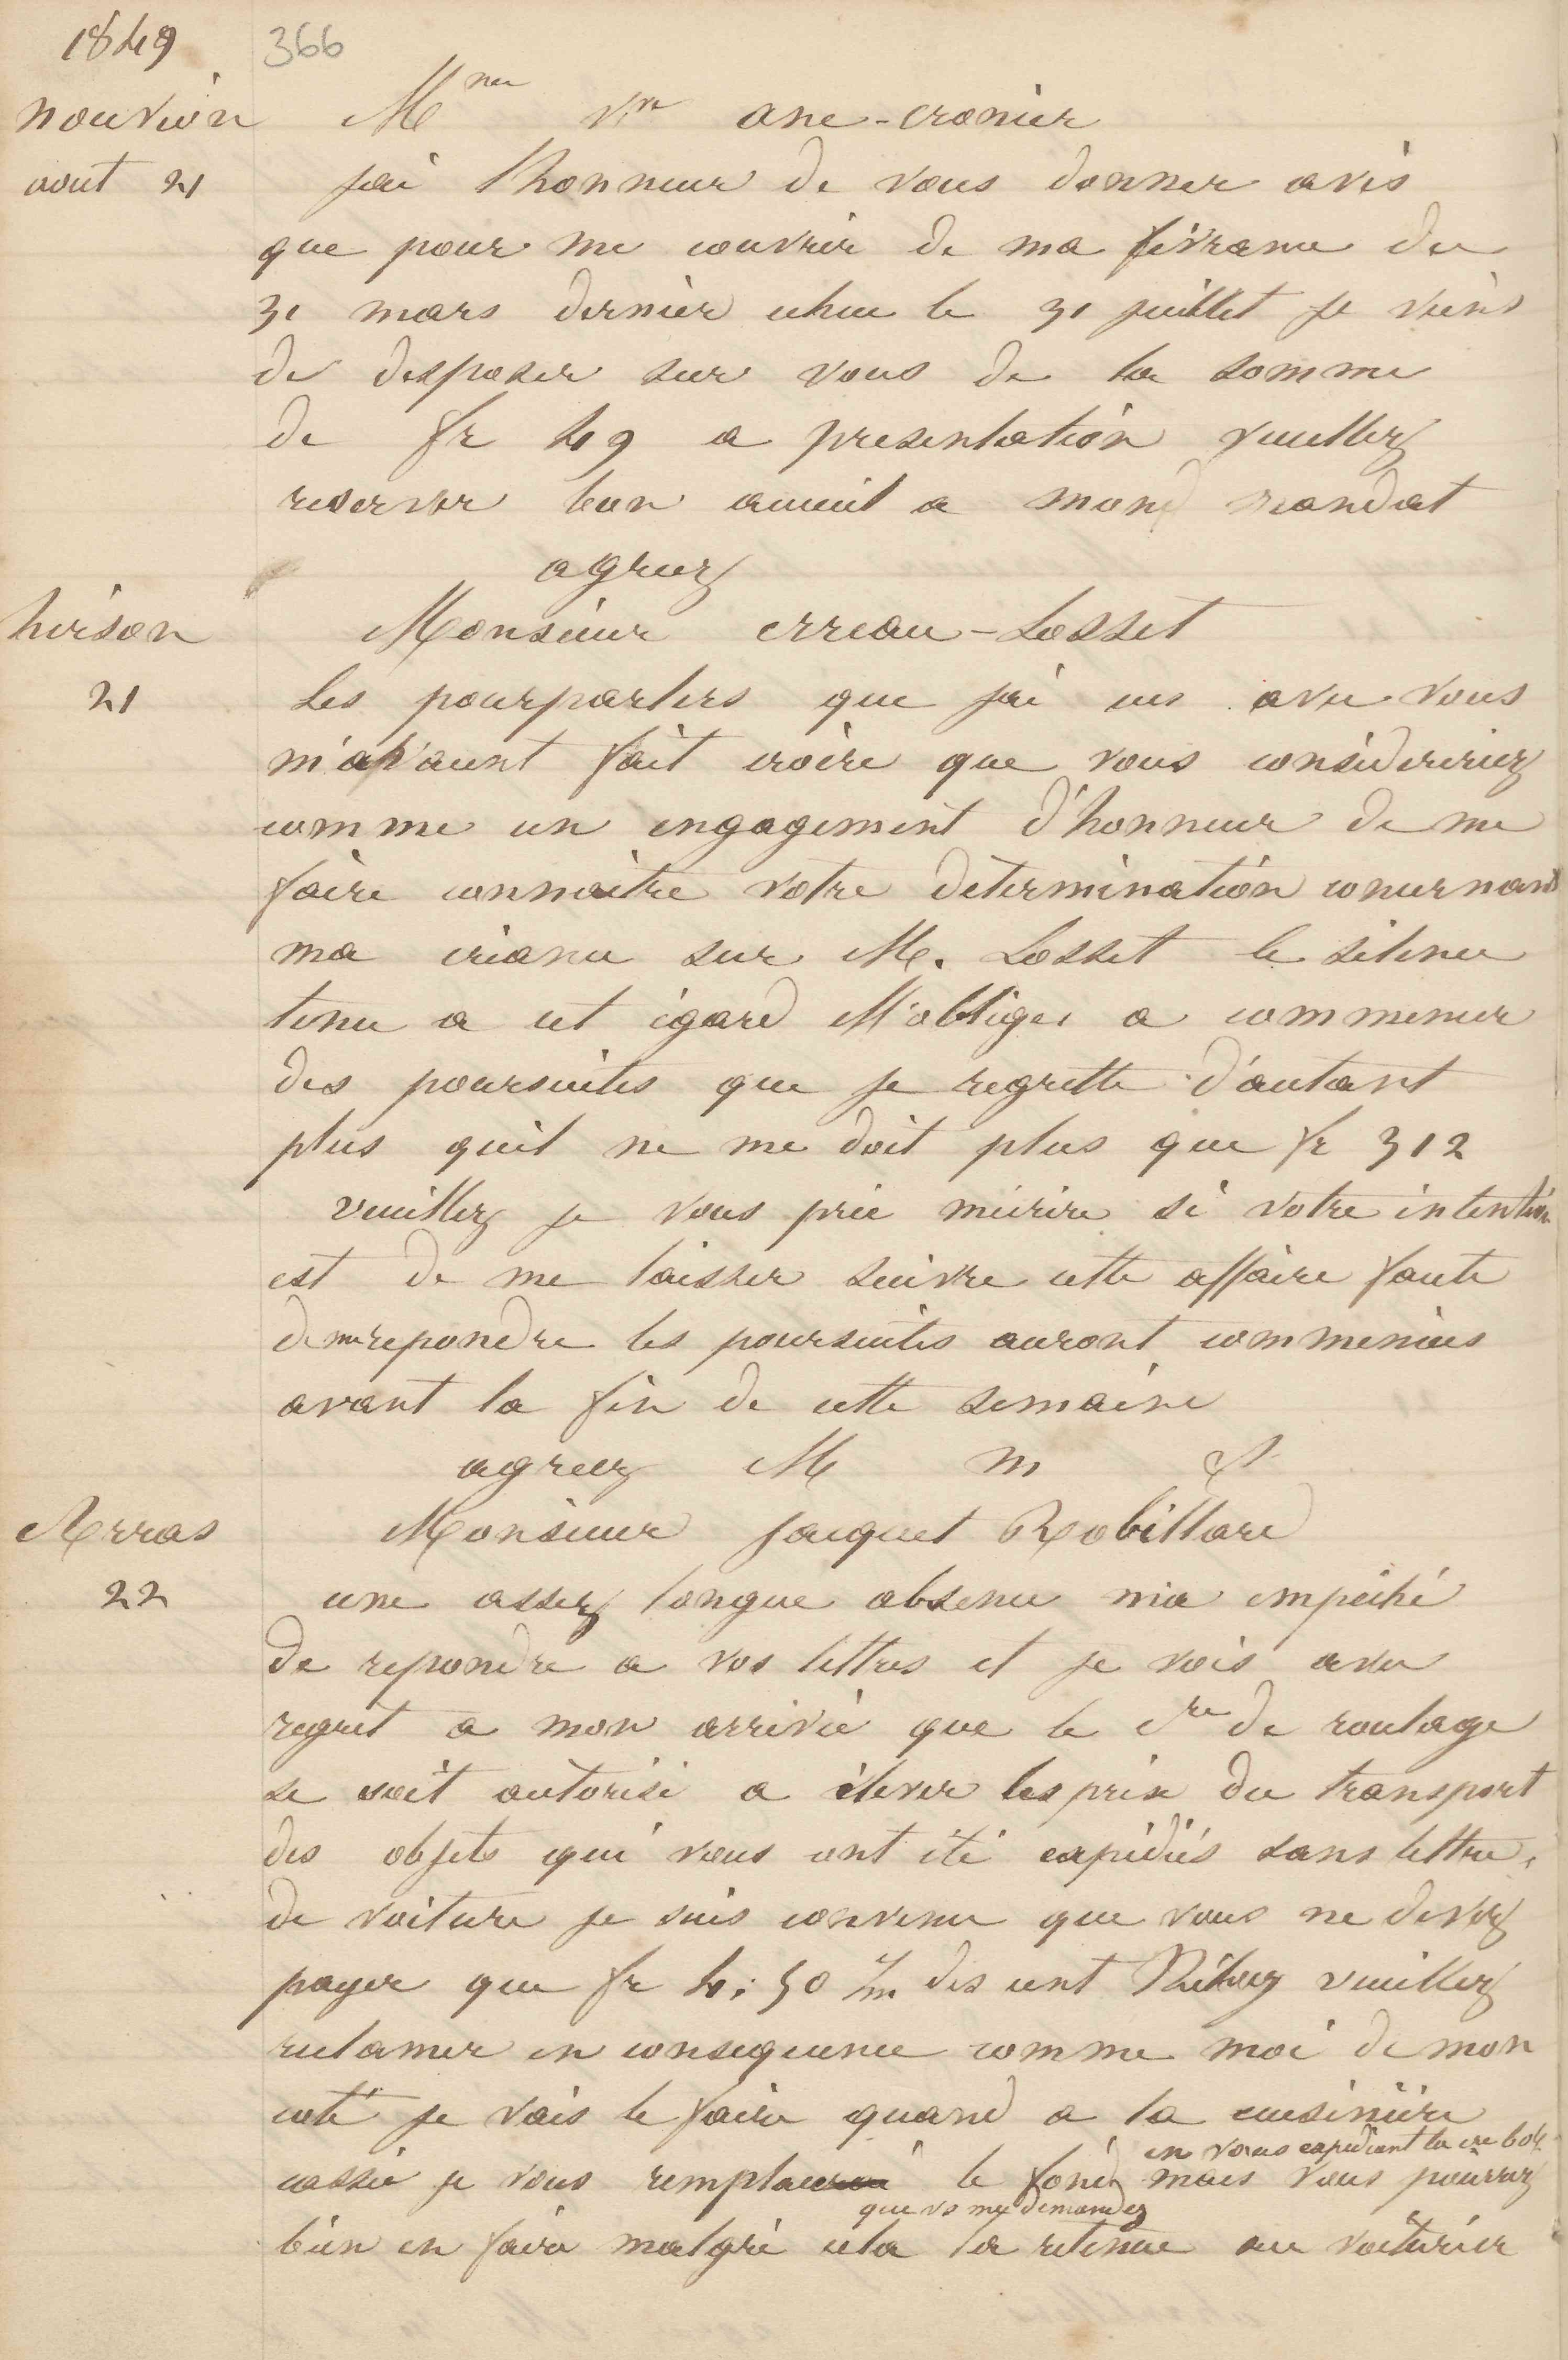 1849
366
nouvion
Mme Vve ane-cronier
aout 21
jai lhonneur de vous donner avis
que pour me couvrir de ma livrance du
31 mars dernier echue le 31 juillet je viens
de desposer sur vous de la somme
de fr 49 a presentation veuillez
reserver bon acceuil a mond mandat
agreez
hirson
Monsieur erreau-Losset
21
Les pourparlers que jai eus avec vous
m'avaient fait croire que vous considereriez
comme un engagement d'honneur de me
faire connaitre votre détermination concernant
ma créance sur M. Losset le silence
tenu a cet égard M'oblige a commencer
des poursuites que je regrette d'autant
plus quil ne me doit plus que fr 312
veuillez je vous prie mécrire si votre intention
est de me laisser suivre cette affaire faute
de me repondre les poursuites auront commencées
avant la fin de cette semaine
agreez M m
Arras
Monsieur jacquet Robillard
22
une assez longue absence ma empéché
de repondre a vos lettres et je vois avec
regret a mon arrivée que le re de roulage
se soit autorisé a élever les prix du transport
des objets qui vous ont été expédiés dans lettre
de voiture je suis convenu que vous ne devez
payer que fr 4.50 des cent veuillez
reclamer en consequence comme moi de mon
coté je vais le faire quand a la cuisiniére
en vous expédiant la
cassée je vous remplacerai le fond mais vous pourrez
que vs me demandez
bien en faire malgré cela la retenue au voiturier